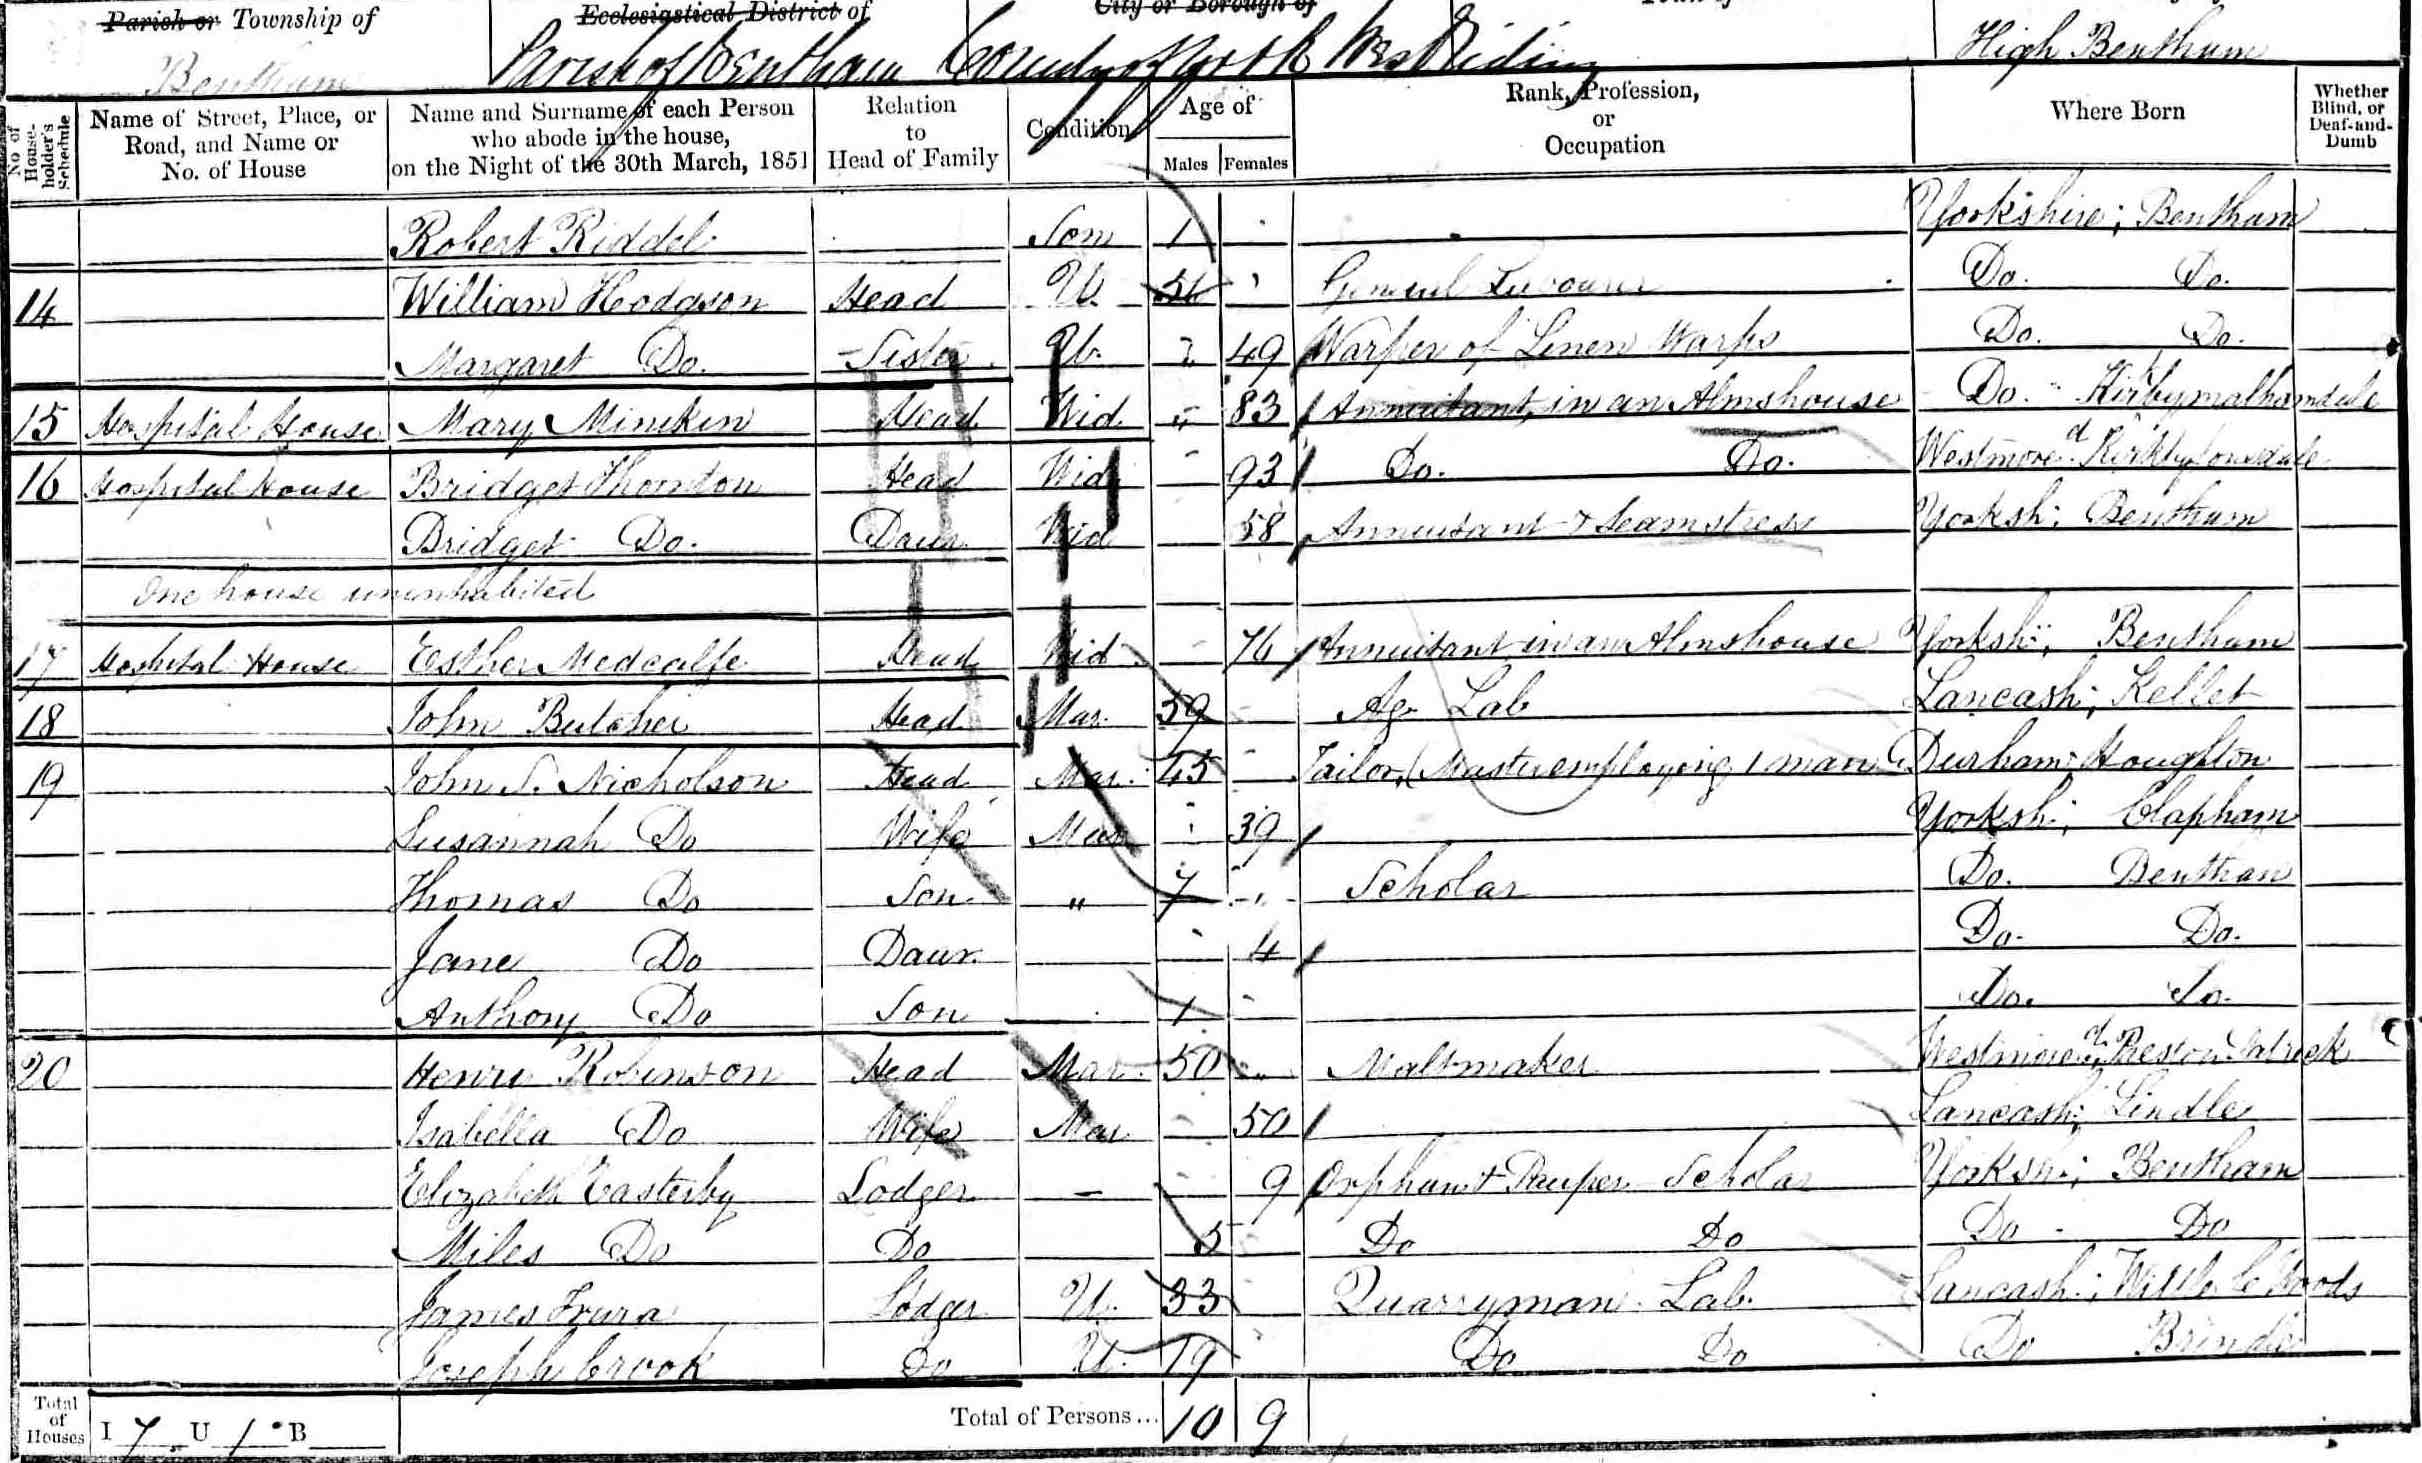 Parish or Township of Ecclesiastical District of City or Borough of
Bentham Parish of Bentham County of York West Riding High Bentham
No of House-holder's Schedule Name of Street, Place, or Road, and Name or No. of House Name and Surname of each Person who abode in the house, on the Night of the 30th March, 1851 Relation to Head of Family Condition Age of Males Females Rank, Profession, or Occupation Where Born Whether Blind, or Deaf-and-Dumb
Robert Riddel Son 1 Yorkshire; Bentham
14 William Hodgson Head U. 54 General Do. Do.
Margaret Do. Sister U. 49 Warper of Linen Warps Do. Do.
15 Hospital House Mary Minikin Head Wid. 83 Annuitant, in an Almshouse Do. Kirkbymalhamdale
16 Hospital House Bridget Thornton Head Wid 93 Do. Do. Westmored. Kirkbylonsdale
Bridget Do. Daur. Wid 58 Annuitant & Seamstress Yorksh; Bentham
One house uninhabited
17 Hospital House Esther Medcalfe Head Wid 76 Annuitant in an Almshouse Yorksh; Bentham
18 John Butcher Head Mar. 59 Ag. Lab Lancash; Kellet
19 John S. Nicholson Head Mar. 45 Tailor, (Master employing 1 man Durham Houghton
Susannah Do Wife Mar 39 Yorksh; Clapham
Thomas Do Son " 7 Scholar Do. Bentham
Jane Do Daur. 4 Do. Do.
Anthony Do Son 1 Do. Do.
20 Henry Robinson Head Mar. 50 Maltmaker Westmored; Preston Patrick
Isabella Do Wife Mar 50 Lancash;
Elizabeth Easterby Lodger - 9 Orphan & Pauper Scholar Yorksh; Bentham
Miles Do Do 5 Do Do Do Do
James Lodger U. 33 Quarryman Lab. Lancash; Woods
Joseph Crook Do U. 19 Do Do Do Brindle
Total of Houses I 7 U 1 B Total of Persons... 10 9